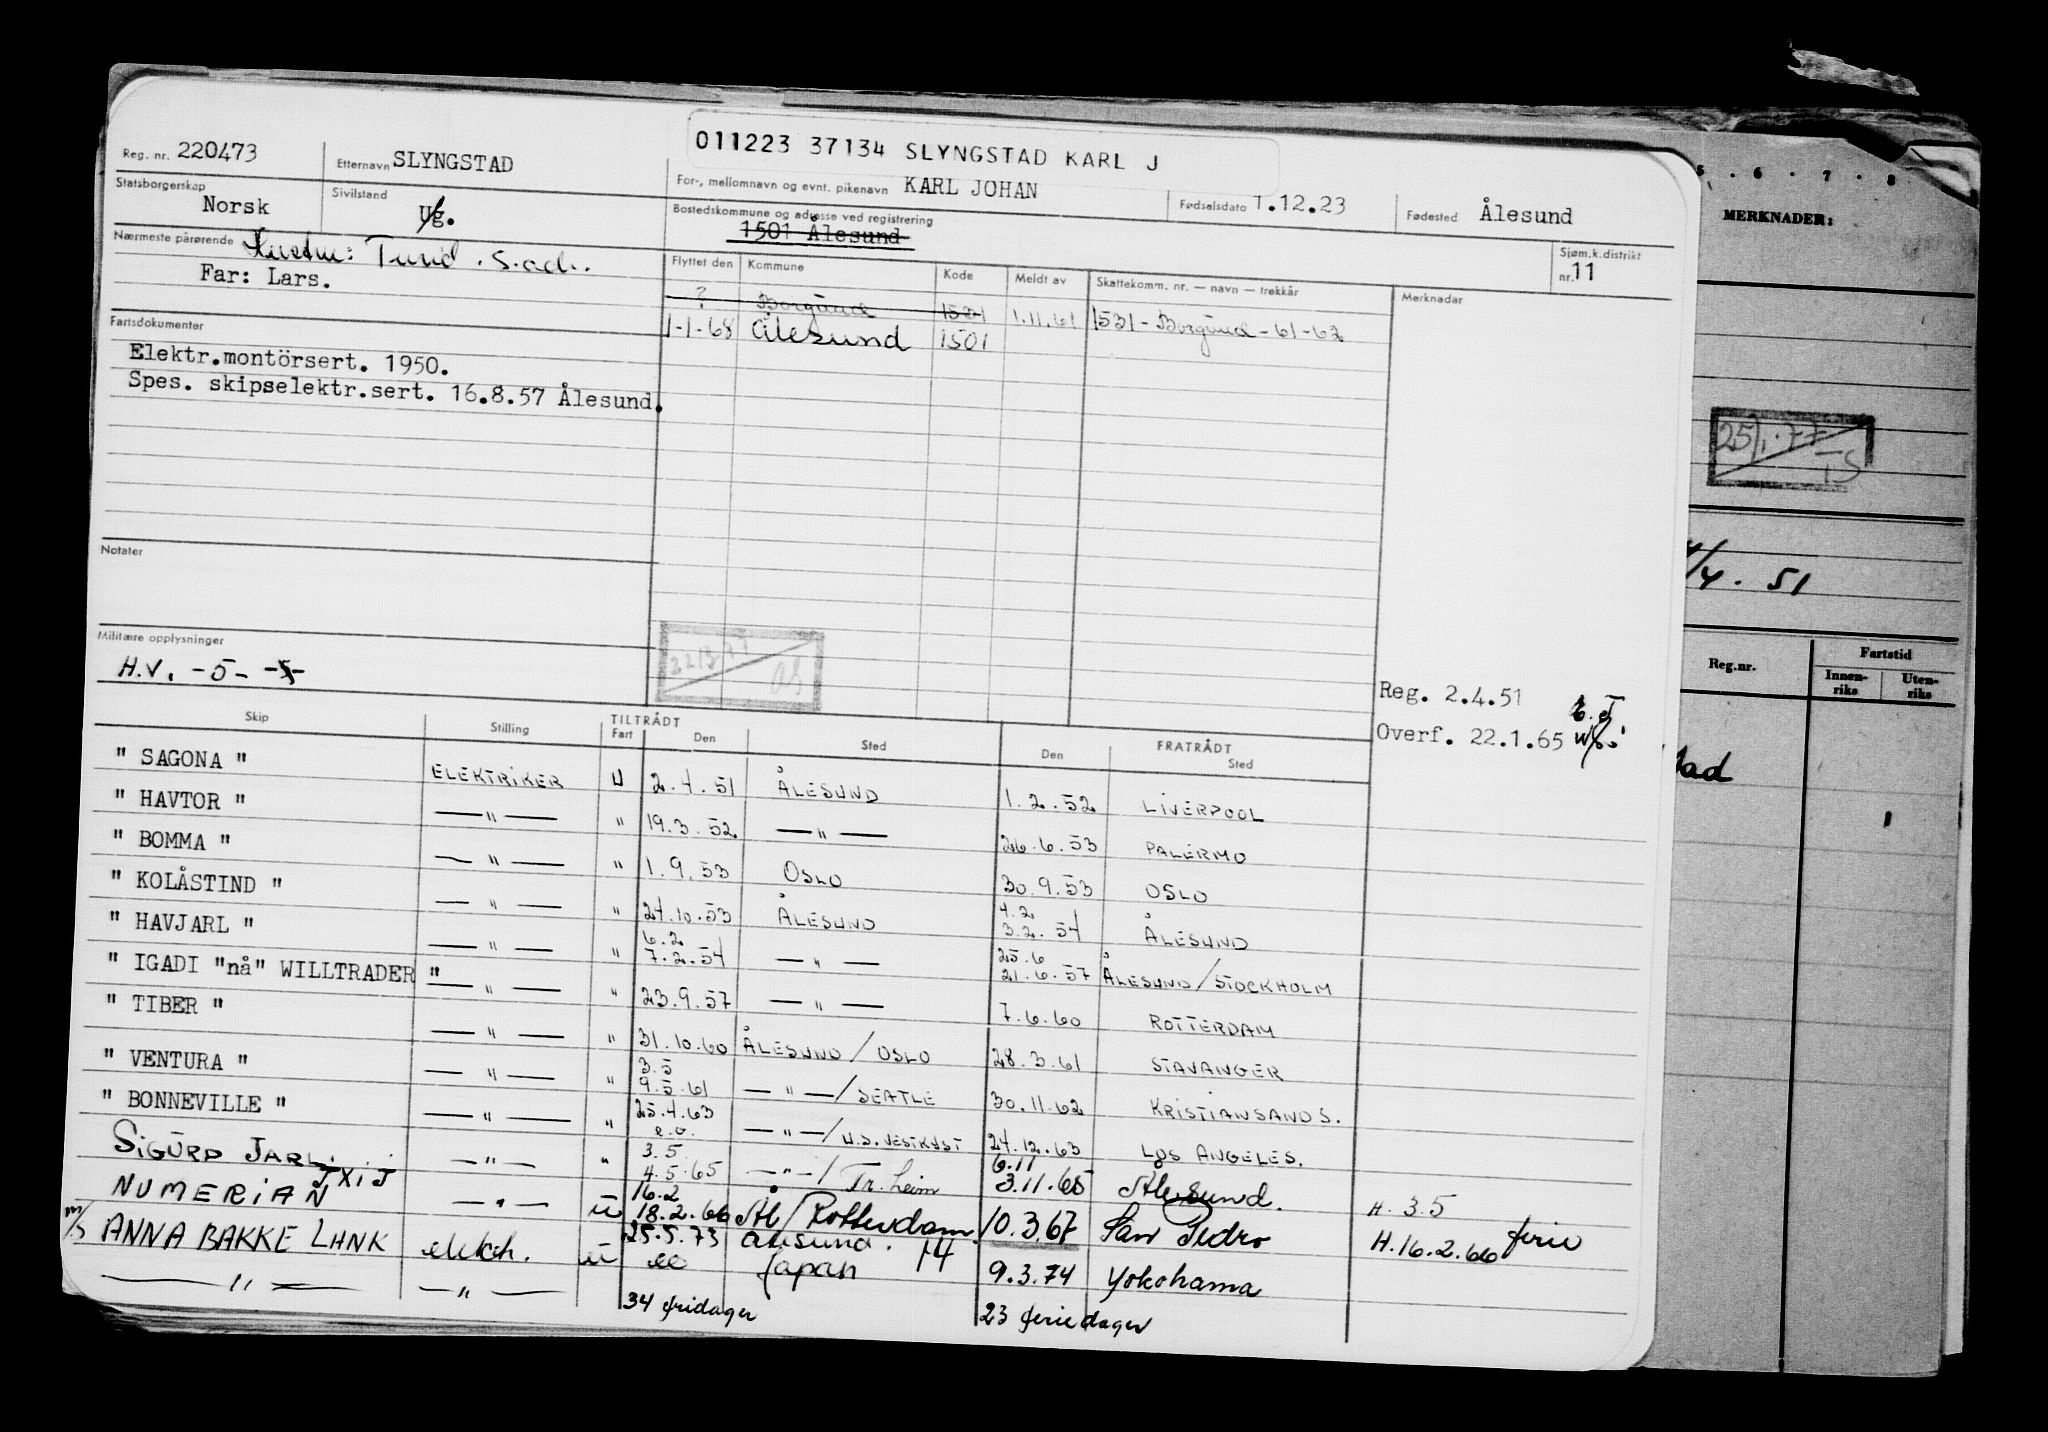 011223 37134 SLYNGSTAD KARL J
Reg. nr. 220473 Etternavn SLYNGSTAD For-, mellomnavn og evnt. pikenavn KARL JOHAN Fødselsdato 1.12.23 Fødested Ålesund
Statsborgerskap Norsk Sivilstand Ug. Bostedskommune og adresse ved registrering 1501 Ålesund Sjøm.k.distrikt nr. 11
Nærmeste pårørende
Far: Lars.
Flyttet den Kommune Kode Meldt av Skattekomm. nr. — navn — trekkår Merknader
? Borgund 1531 1.11.61 1531 - Borgund - 61-62
1-1-68 Ålesund 1501
Fartsdokumenter
Elektr.montörsert. 1950.
Spes. skipselektr.sert. 16.8.57 Ålesund.
Notater
Militære opplysninger
H.V. -5-
Reg. 2.4.51
Overf. 22.1.65
Skip Stilling TILTRÅDT Fart Den Sted FRATRÅDT Den Sted
" SAGONA " ELEKTRIKER U 2.4.51 ÅLESUND 1.2.52 LIVERPOOL
" HAVTOR " — " — " 19.3.52 — " — 26.6.53 PALERMO
" BOMMA " — " — " 1.9.53 OSLO 30.9.53 OSLO
" KOLÅSTIND " — " — " 24.10.53 ÅLESUND 4.2 3.2.54 ÅLESUND
" HAVJARL " — " — " 6.2 7.2.54 — " — 25.6 21.6.57 ÅLESUND/STOCKHOLM
" IGADI "nå" WILLTRADER " — " — " 23.9.57 — " — 7.6.60 ROTTERDAM
" TIBER " — " — " 31.10.60 ÅLESUND / OSLO 28.3.61 STAVANGER
" VENTURA " — " — " 3.5 9.5.61 — " — / SEATLE 30.11.62 KRISTIANSAND S.
" BONNEVILLE " — " — " 25.4.63 e.o. — " — / U.S. VESTKYST 24.12.63 LOS ANGELES.
SIGURD JARL. — " — " 3.5 4.5.65 — " — / Tr. heim 6.11 3.11.65 Ålesund. H. 3.5
NUMERIAN JXIJ — " — u 16.2 18.2.66 Ål/Rotterdam 10.3.67 San Pedro H.16.2.66 ferie
m/s ANNA BAKKE LHNK elektr. u 25.5.73 Ålesund. 14
— " — — " — Japan 9.3.74 Yokohama
34 fridager 23 feriedager
5 . 6 . 7 . 8
MERKNADER:
25/1.77 TS
/4. 51
Reg.nr. Fartstid
Innenriks Utenriks